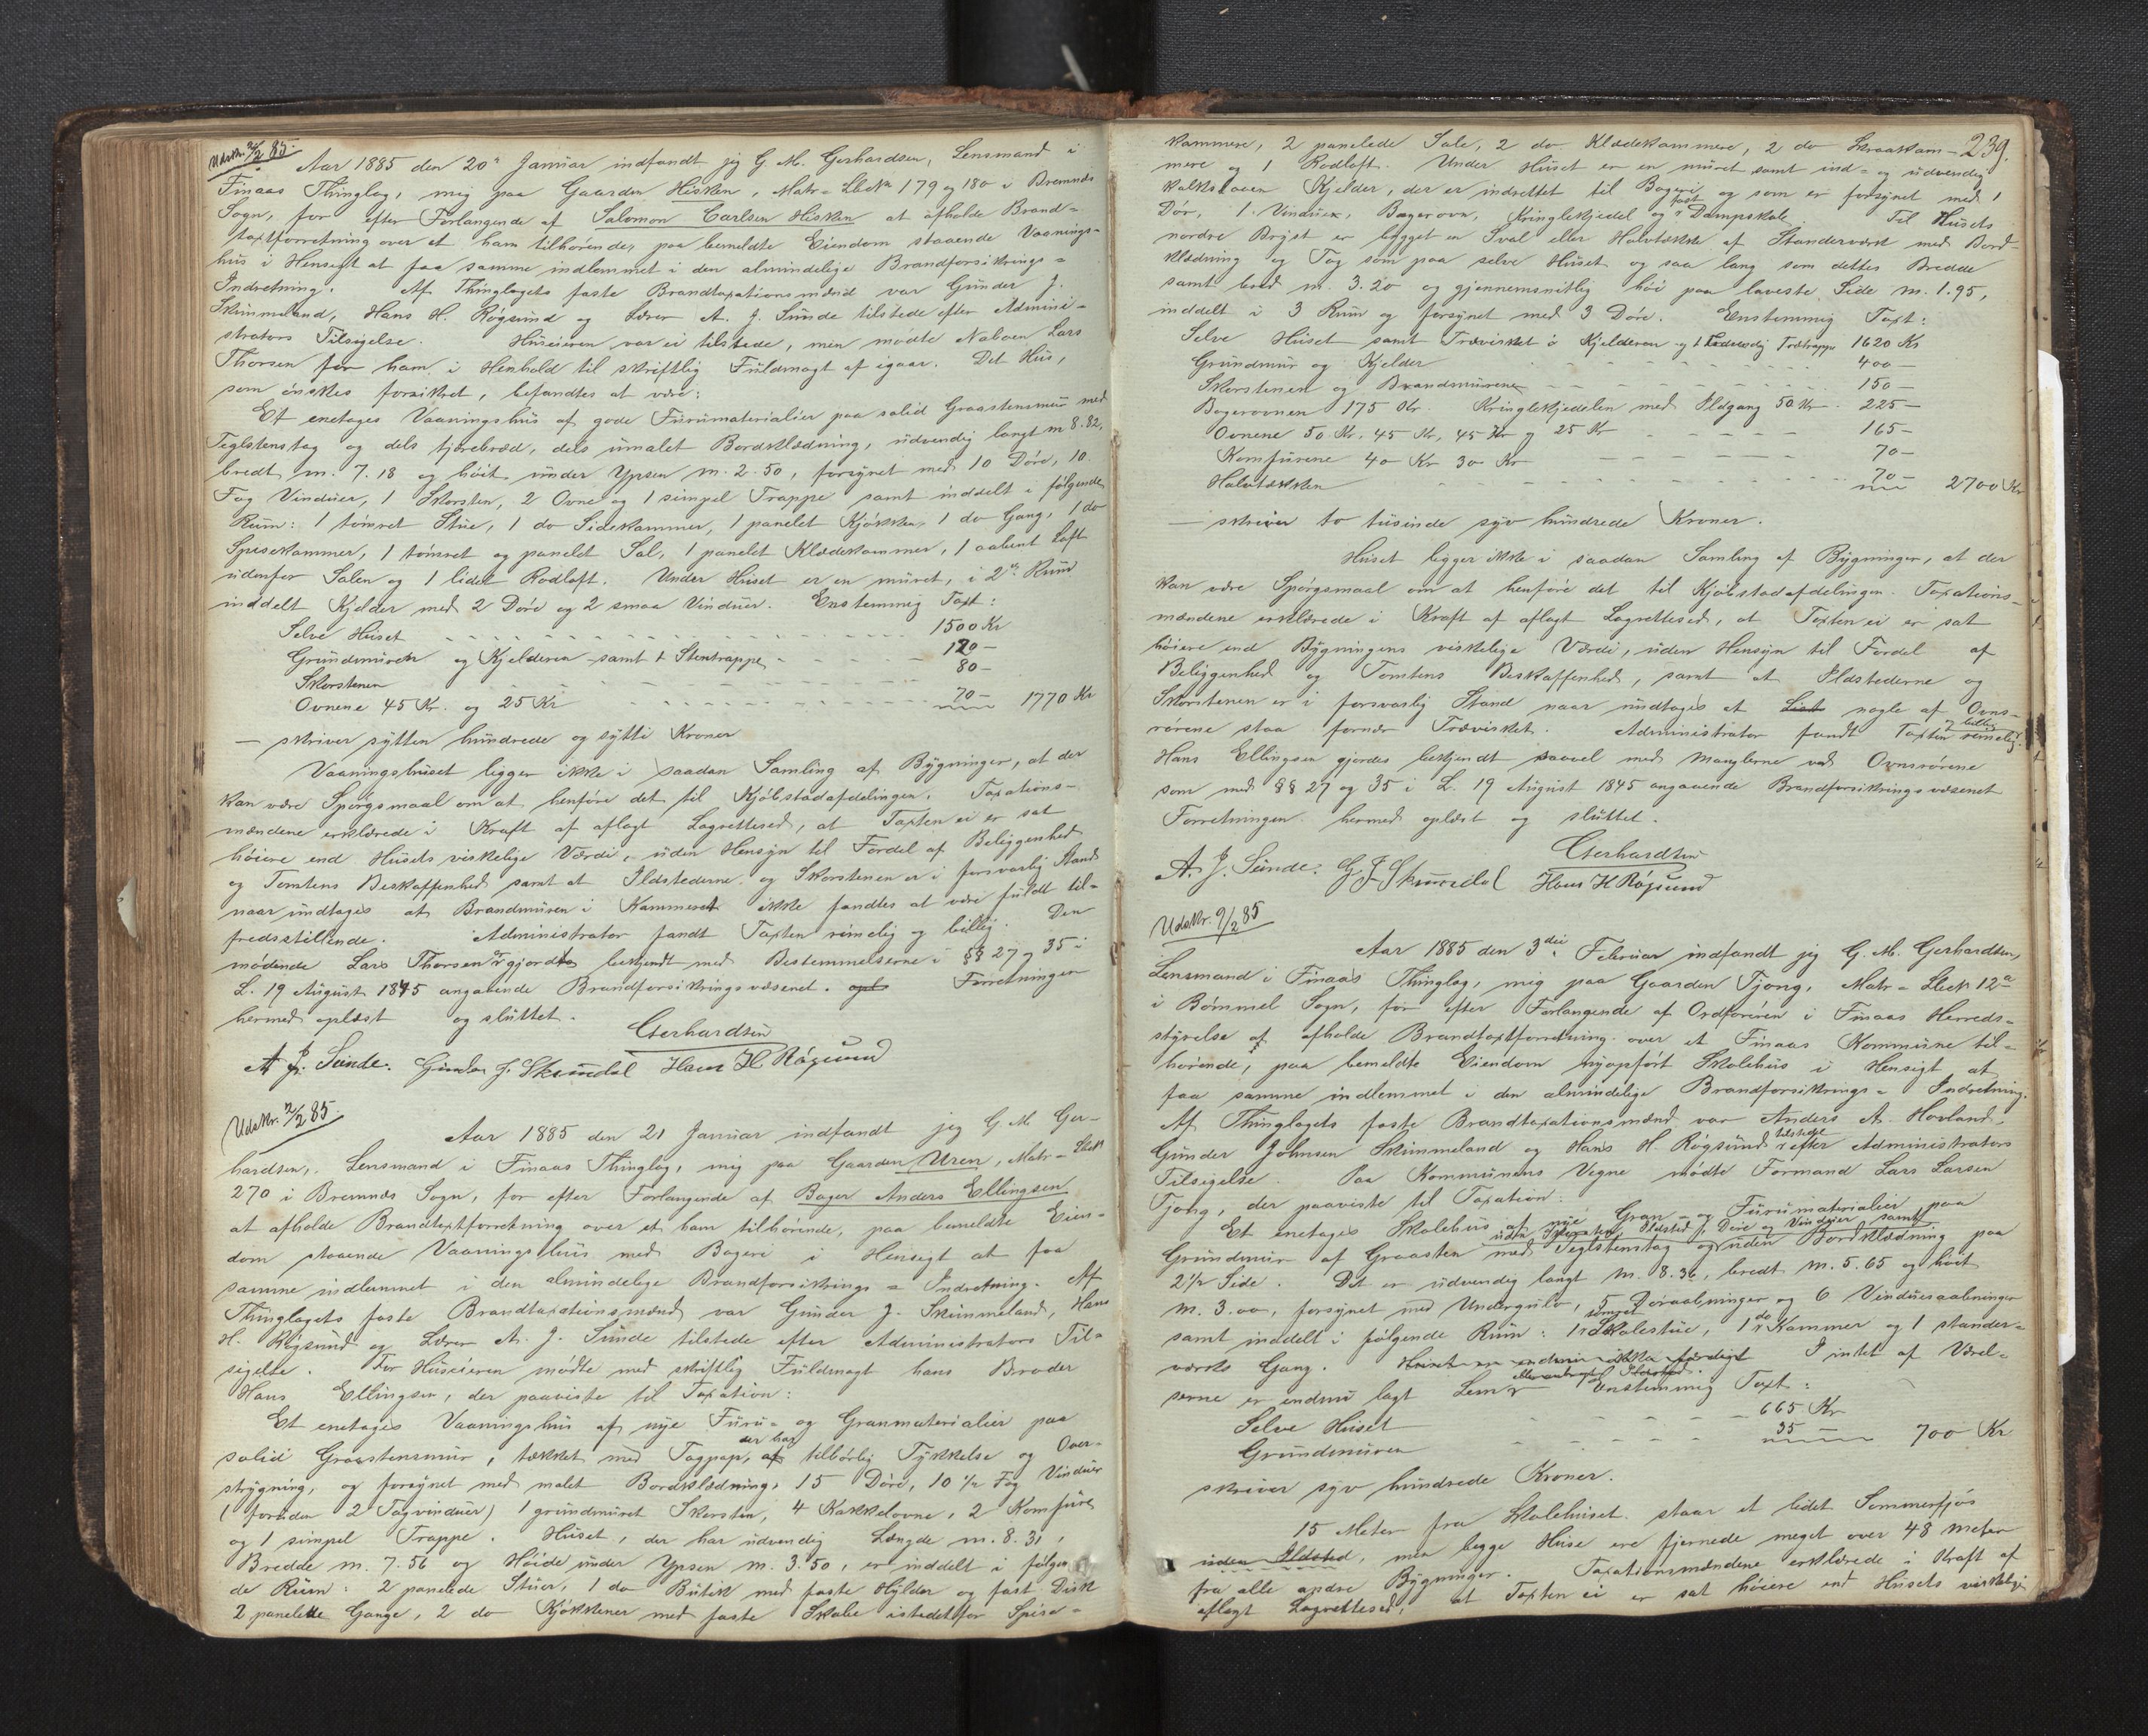 Udskr. 2/2 85.
Aar 1885 den 20de Januar indfandt jeg G. M. Gerhardsen, Lensmand i
Finaas Thinglag, mig paa Gaarden Hisken, Matr-Løbn 179 og 180 i Bremnæs
Sogn, for efter Forlangende af Salomon Carlsen Hisken at afholde Brand-
taxtforretning over et ham tilhørende, paa bemeldte Eiendom staaende Vaanings-
hus i Hensigt at faa samme indlemmet i den almindelige Brandforsikrings-
Indretning. Af Thinglagets faste Brandtaxationsmænd var Gunder J.
Skimmeland, Hans H. Røgsund og Lærer A. J. Sunde tilstede efter Admini-
strators Tilsigelse. Huseieren var ei tilstede, men mødte Naboen Lars
Thorsen for ham i Henhold til skriftlig Fuldmagt af igaar. Det Hus,
som ønskes forsikret, befandtes at være:
Et enetages Vaaningshus af gode Furumaterialier paa solid Graastensmur med
Teglstenstag og dels tjærebræd, dels umalet Bordklædning, udvendig langt m 8.82,
bredt m. 7.18 og høit under Ypsen m. 2.50, forsynet med 10 Døre, 10
Fag Vinduer, 1 Skorsten, 2 Ovne og 1 simpel Trappe samt inddelt i følgende
Rum: 1 tømret Stue, 1 do Sidekammer, 1 panelet Kjøkken, 1 do Gang, 1 do
Spisekammer, 1 tømret og panelet Sal, 1 panelet Klædekammer, 1 aabent Loft
udenfor Salen og 1 lidet Rodloft. Under Huset er en muret, i 2de Rum
inddelt Kjelder med 2 Døre og 2 smaa Vinduer. Enstemmig Taxt:
Selve Huset 1500 Kr
Grundmuren og Kjelderen samt 1 Stentrappe 120 -
Skorstenen 80 -
Ovnene 45 Kr. og 25 Kr 70 - 1770 Kr
- skriver sytten hundrede og sytti Kroner
Vaaningshuset ligger ikke i saadan Samling af Bygninger, at der
kan være Spørgsmaal om at henføre det til Kjøbstadafdelingen. Taxations-
mændene erklærede i Kraft af aflagt Lagrettesed, at Taxten ei er sat
høiere end Husets virkelige Værdi, uden Hensyn til Fordel af Beliggenhed
og Tomtens Beskaffenhed samt at Ildstederne og Skorstenen er i forsvarlig Stand
naar undtages at Brandmuren i Kammeret ikke fandtes at være fuldt til-
fredsstillende. Administrator fandt Taxten rimelig og billig. Den
mødende Lars Thorsen er gjordt bekjendt med Bestemmelserne i §§ 27 og 35 i
L. 19 August 1845 angaaende Brandforsikringsvæsenet. Forretningen
hermed oplæst og sluttet.
Gerhardsen
A. J. Sunde. Gunder J. Skimdal Hans H Røgsund
Udskr. 2/2 85.
Aar 1885 den 21 Januar indfandt jeg G. M. Ger-
hardsen, Lensmand i Finaas Thinglag, mig paa Gaarden Uren, Matr-Løbn
270 i Bremnæs Sogn, for efter Forlangende af Bager Anders Ellingsen
at afholde Brandtaxtforretning over et ham tilhørende, paa bemeldte Eien-
dom staaende Vaaningshus med Bageri i Hensigt at faa
samme indlemmet i den almindelige Brandforsikrings-Indretning. Af
Thinglagets faste Brandtaxationsmænd var Gunder J. Skimmeland, Hans
H. Røgsund og Lærer A. J. Sunde tilstede efter Administrators Til-
sigelse. For Huseieren mødte med skriftlig Fuldmagt hans Broder
Hans Ellingsen, der paaviste til Taxation:
Et enetages Vaaningshus af nye Furu- og Granmaterialier paa
solid Graastensmur, tækket med Tagpap, der har tilbørlig Tykkelse og Over-
strygning, og forsynet med malet Bordklædning, 15 Døre, 10 1/2 Fag Vinduer
(foruden 2 Tagvinduer) 1 grundmuret Skorsten, 4 Kakkelovne, 2 Komfure
og 1 simpel Trappe. Huset, der har udvendig Længde m. 8.31,
Bredde m. 7.56 og Høide under Ypsen m. 3.50, er inddelt i følgen-
de Rum: 2 panelede Stuer, 1 do Butik med faste Hylder og fast Disk
2 panelede Gange, 2 do Kjøkkener med faste Skabe istedetfor Spise-
239.
kammere, 2 panelede Sale, 2 do Klædekammere, 2 do Skraakam-
mere og 1 Rodloft. Under Huset er en muret samt ind- og udvendig
kalkslaaen Kjelder, der er indrettet til Bageri og som er forsynet med 1
Dør, 1 Vindue, Bagerovn, Kringlekjedel og fast Dampskab. Til Husets
nordre Bryst er bygget en Sval eller Halvtække af Standerværk med Bord-
klædning og Tag som paa selve Huset og saa lang som dettes Bredde
samt bred m. 3.20 og gjennemsnitlig høi paa laveste Side m. 1.95,
inddelt i 3 Rum og forsynet med 3 Døre. Enstemmig Taxt:
Selve Huset samt Trævirket i Kjelderen og 1 udvendig Trætrappe 1620 Kr
Grundmur og Kjelder 400 -
Skorstenen og Brandmurene 150 -
Bagerovnen 175 Kr. Kringlekjedelen med Ildgang 50 Kr. 225 -
Ovnene 50 Kr, 45 Kr, 45 Kr og 25 Kr 165 -
Komfurene 40 Kr 30 Kr 70 -
Halvtækken 70 - 2700 Kr
- skriver to tusinde syv hundrede Kroner.
Huset ligger ikke i saadan Samling af Bygninger, at der
kan være Spørgsmaal om at henføre det til Kjøbstadafdelingen. Taxations-
mændene erklærede i Kraft af aflagt Lagrettesed, at Taxten ei er sat
høiere end Bygningens virkelige Værdi, uden Hensyn til Fordel af
Beliggenhed og Tomtens Beskaffenhed, samt at Ildstederne og
Skorstenen er i forsvarlig Stand naar undtages at nogle af Ovns-
rørene staa fornær Trævirket. Administrator fandt Taxten rimelig og billig.
Hans Ellingsen gjordes bekjendt saavel med Manglerne ved Ovnsrørene
som med §§ 27 og 35 i L. 19 August 1845 angaaende Brandforsikringsvæsenet
Forretningen hermed oplæst og sluttet.
Gerhardsen
A. J. Sunde. G J Skimdal Hans H Røgsund
Udskr. 9/2 85
Aar 1885 den 3die Februar indfandt jeg G. M. Gerhardsen,
Lensmand i Finaas Thinglag, mig paa Gaarden Tjong, Matr-Løbn 12a
i Bømmel Sogn, for efter Forlangende af Ordføreren i Finaas Herreds-
styrelse at afholde Brandtaxtforretning over et Finaas Kommune til-
hørende, paa bemeldte Eiendom nyopført Skolehus i Hensigt at
faa samme indlemmet i den almindelige Brandforsikrings-Indretning.
Af Thinglagets faste Brandtaxationsmænd var Anders A. Hovland,
Gunder Johnsen Skimmeland og Hans H. Røgsund tilstede efter Administrators
Tilsigelse. Paa Kommunens Vegne mødte Formand Lars Larsen
Tjong, der paaviste til Taxation:
Et enetages Skolehus af nye Gran- og Furumaterialier paa
Grundmur af Graasten med Teglstenstag uden Ildsted, Døre og Vinduer samt uden Bordklædning paa
2 1/2 Side. Det er udvendig langt m. 8.36, bredt m. 5.65 og høit
m. 3.00, forsynet med Undergulv, 5 Døraabninger og 6 Vinduesaabninger
samt inddelt i følgende Rum: 1 tømret Skolestue, 1 do Kammer og 1 stander-
værks Gang. Huset er endnu ikke færdigt I intet af Værel-
serne er endnu lagt Lem eller anbragt Ildsted. Enstemmig Taxt:
Selve Huset 665 Kr
Grundmuren 35 - 700 Kr
skriver syv hundrede Kroner.
15 Meter fra Skolehuset staar et lidet Sommerfjøs
uden Ildsted, men begge Huse ere fjernede meget over 48 Meter
fra alle andre Bygninger. Taxationsmændene erklærede i Kraft af
aflagt Lagrettesed, at Taxten ei er sat høiere end Husets virkelige